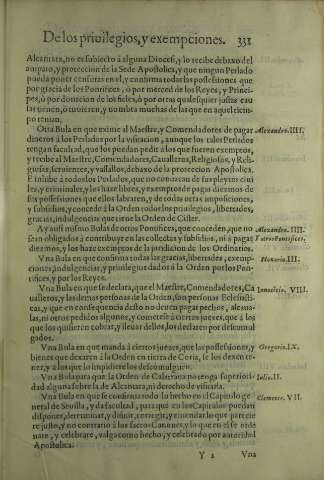 De los priuilegios, y exempciones. 331
Alcantara, no es subiecto à alguna Diocesi, y lo recibe debaxo del
amparo, y proteccion de la Sede Apostolica, y que ningun Perlado
pueda poner censuras en el, y confirma todas las possessiones que
por gracia de los Pontifices, ò por merced de los Reyes, y Princi-
pes, ò por donacion de los fieles, ò por otras qualesquier justas cau
sas tienen, ò tuuieren, y nombra muchas de las que en aquel tiem-
po tenian.
Otra Bula en que exime al Maestre, y Comendadores de pagar Alexandro. IIII.
dineros à los Perlados por la visitacion, aunque los tales Perlados
tengan facultad, que los puedan pedir à los que fueren exemptos,
y recibe al Maestre, Comendadores, Caualleros, Religiosos, y Reli-
giosas, siruientes, y vassallos, debaxo de la proteccion Apostolica.
E inhibe à todos los Perlados, que no conozcan de sus pleytos ciui
les, y criminales, y les haze libres, y exemptos de pagar diezmos de
sus possessiones que ellos labraren, y de todas otras imposiciones,
y subsidios, y concede à la Orden todos los priuilegios, libertades,
gracias, indulgencias que tiene la Orden de Cister.
Ay ansi mismo Bulas de otros Pontifices, que conceden, que no Alexandro. IIII.
sean obligados à contribuyr en las collectas y subsidios, ni à pagar Y otros Pontifices.
diezmos, y los haze exemptos de la jurisdicion de los Ordinarios.
Vna Bula en que confirma todas las gracias, libertades, exemp- Honorio. III.
ciones, indulgencias, y priuilegios dados à la Orden por los Pon-
tifices, y por los Reyes.
Vna Bula en que se declara, que el Maestre, Comendadores, Ca Innocencio. VIII.
ualleros, y las demas personas de la Orden, son personas Eclesiasti-
cas, y que en consequencia desto no deuen pagar pechos, alcaua-
las, ni otros pedidos algunos, y comete à ciertos juezes, que à los
que los quisieren cobrar, y lleuar dellos, los declaren por descomul
gados.
Vna Bula en que manda à ciertos juezes, que las possessiones, y Gregorio. IX.
bienes que dexaren à la Orden en tierra de Coria, se los dexen te-
ner, y à los que la impidieren los descomulguen.
Vna Bula para que la Orden de Calatraua no tenga superiori- Iulio. II.
dad alguna sobre la de Alcantara, ni derecho de visitarla.
Vna Bula en que se confirma todo lo hecho en el Capitulo ge Clemente. VII.
neral de Seuilla, y da facultad, para que en los Capitulos puedan
disponer, determinar, y difinir, corregir, y enmendar lo que parecie
re justo, y no contrario à los sacros Canones, y lo que en el se orde
nare, y celebrare, valga como hecho, y celebrado por autoridad
Apostolica.
Y 2 Vna